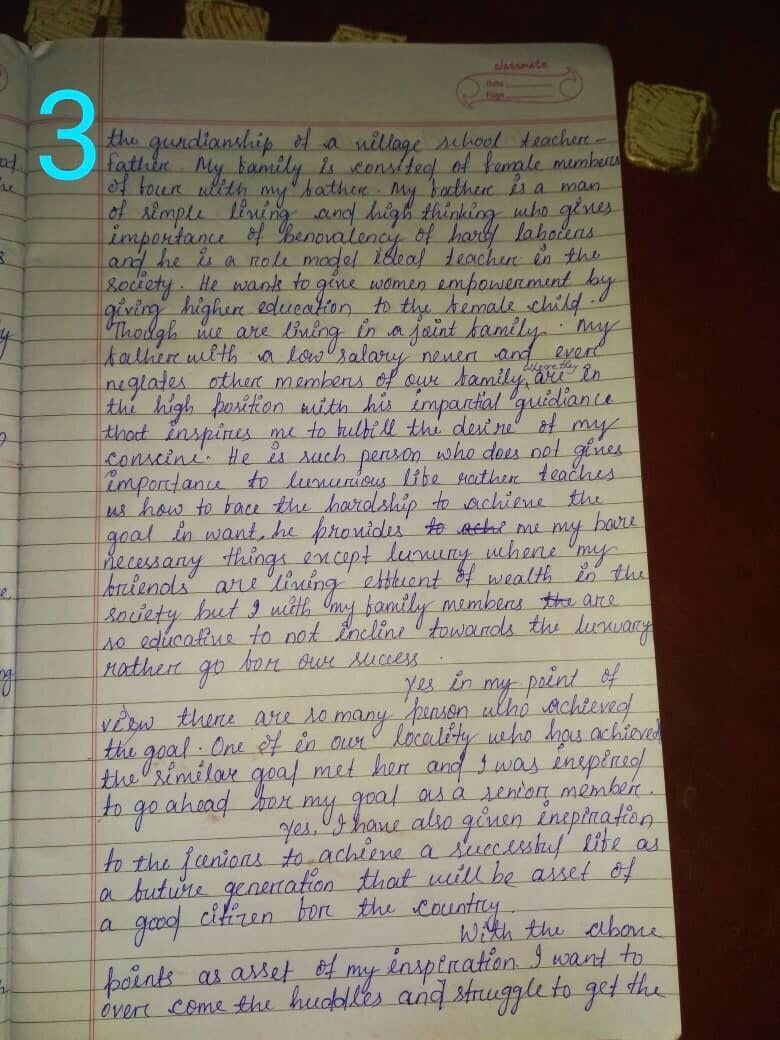 3
classmate
Date
Page
the gurdianship of a village school teacher-
father. My family is consited of female members
of four with my father. My father is a man
of simple living and high thinking who gives
importance of benovalency of hard labours
and he is a role model ideal teacher in the
society. He wants to give women empowerment by
giving higher education to the female child.
Though we are living in a joint family. My
father with a low salary never and ever
neglates other members of our family, where they are in
the high position with his impartial guidiance
that inspires me to fulfill the desire of my
conscine. He is such person who does not gives
importance to luxurious life rather teaches
us how to face the hardship to achieve the
goal in want, he provides to ache me my bare
necessary things except luxury where my
friends are living effluent of wealth in the
society but I with my family members the are
so educative to not incline towards the luxuary
rather go for our success.
Yes in my point of
view there are so many person who achieved
the goal. One of in our locality who has achieved
the similar goal met her and I was inspired
to go ahead for my goal as a senior member.
Yes, I have also given inspiration
to the juniors to achieve a successful life as
a future generation that will be asset of
a good citizen for the country.
With the above
points as asset of my inspiration I want to
over come the huddles and struggle to get the